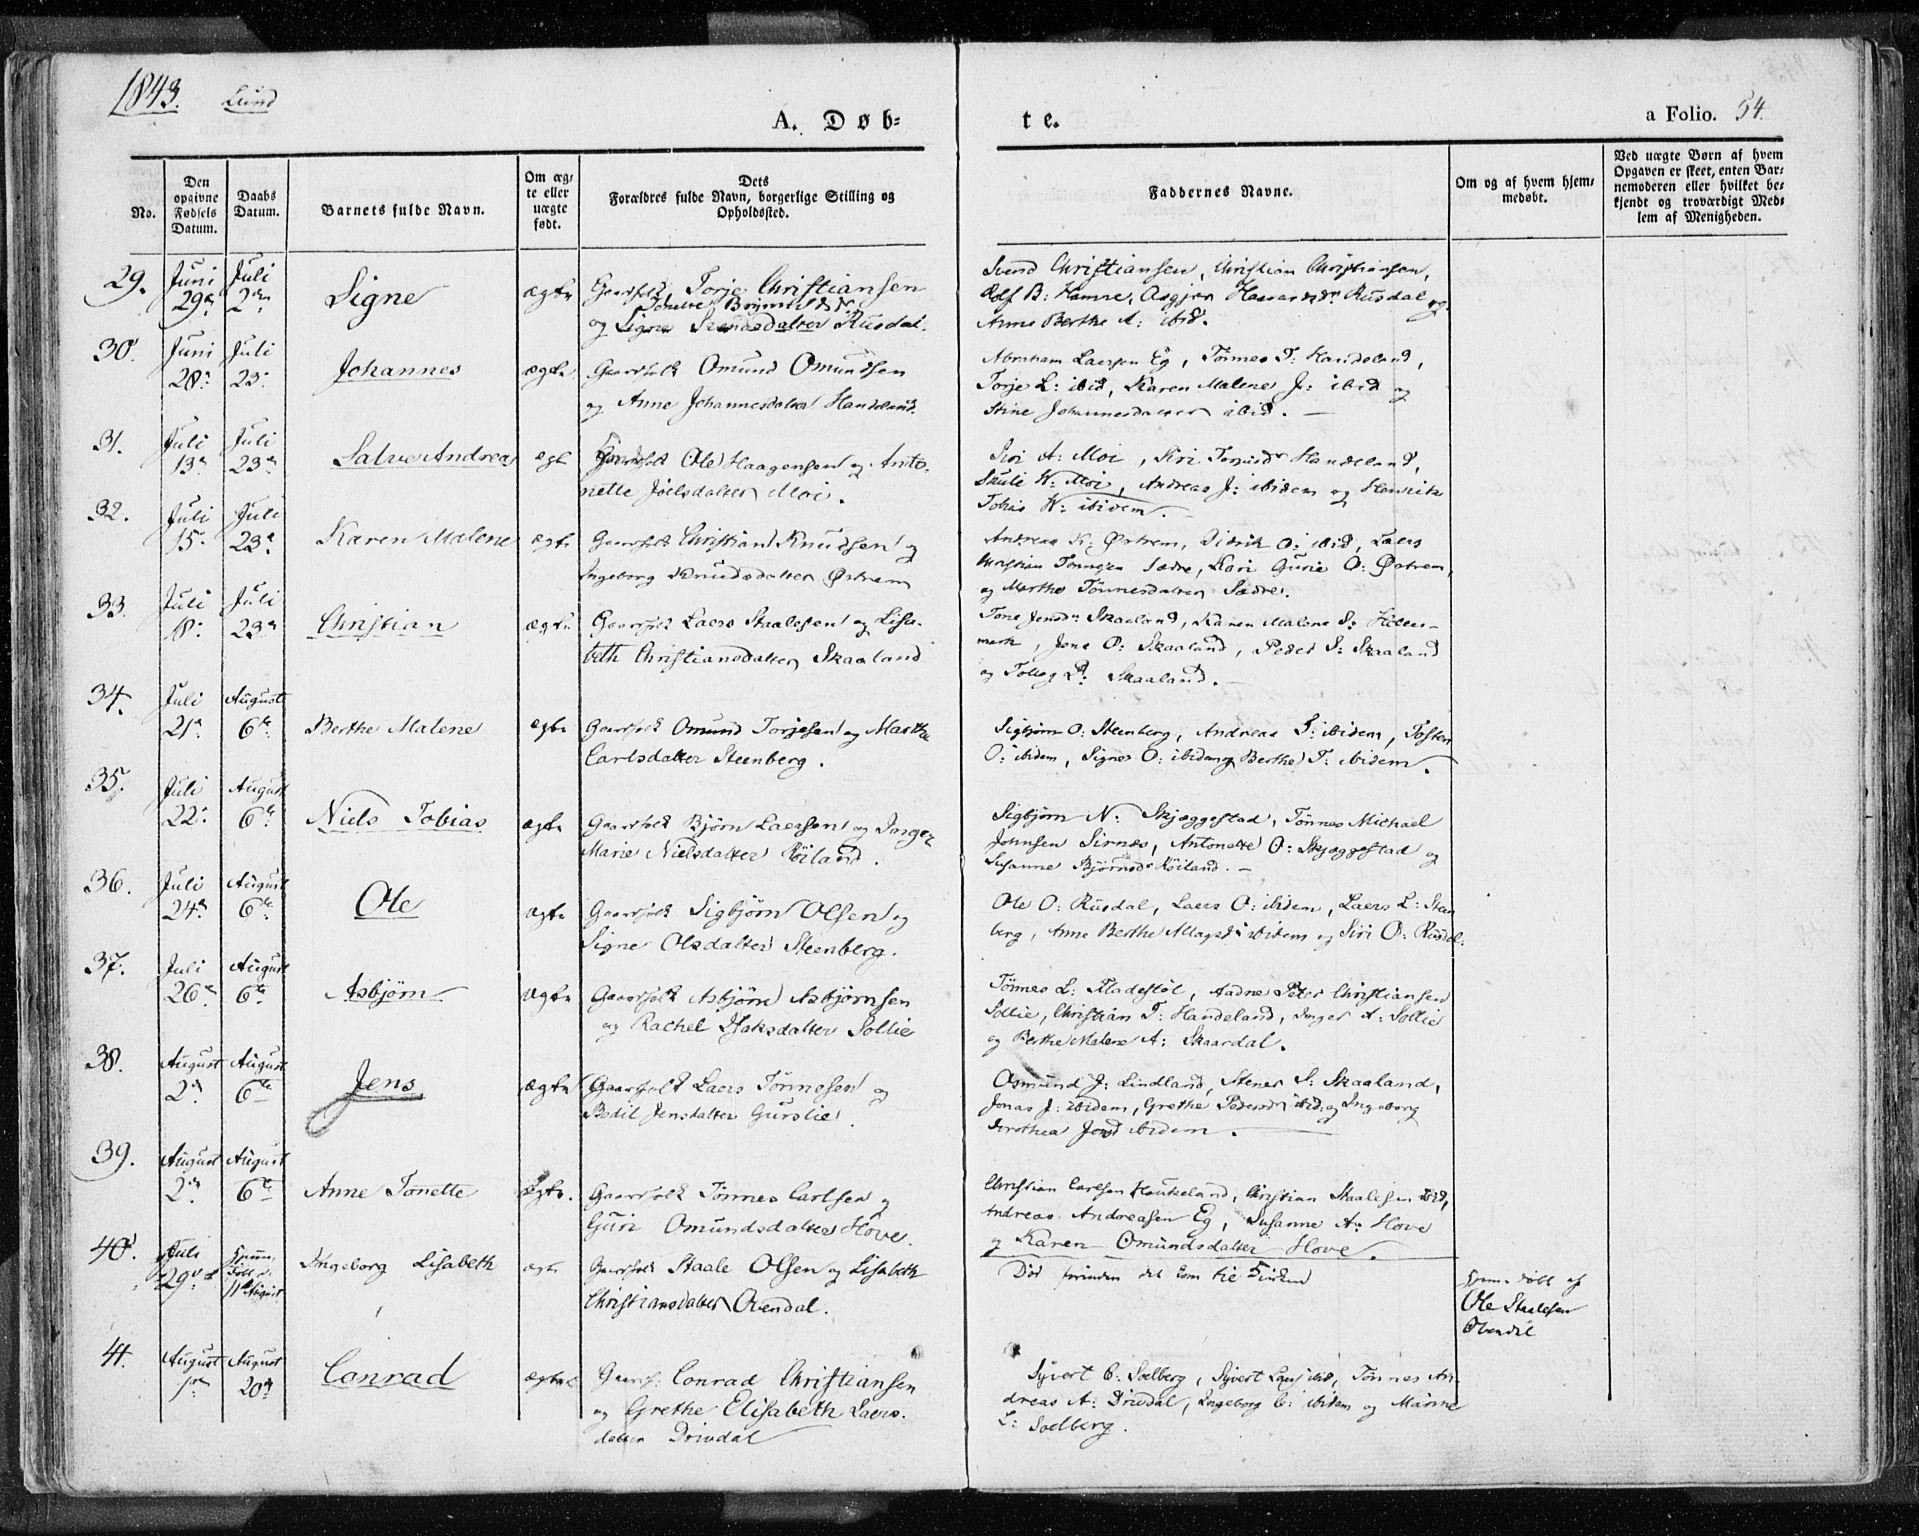 1843. Lund
A. Døb-
te.
a Folio. 54.
No.
Den opgivne Fødsels Datum.
Daabs Datum.
Barnets fulde Navn.
Om ægte eller uægte født.
Dets Forældres fulde Navn, borgerlige Stilling og Opholdssted.
Faddernes Navne.
Om og af hvem hjemmedøbt.
Ved uægte Børn af hvem Opgaven er skeet, enten Barnemoderen eller hvilket bekjendt og troværdigt Medlem af Menigheden.
29. Juni 29de Juli 2den Signe ægte Gaardfolk Torje Christiansen
og Rusdal.
Svend Christiansen, Christian Christiansen,
B: Hamre, Asgjer Rusdal og
Anne Berthe A: ibid.
30. Juni 28: Juli 23: Johannes ægte Gaardfolk Omund Omundsen
og Anne Johannesdatter Handeland.
Abraham Laersen Eg, Tönnes T: Handeland,
Torje L: ibid, Karen Malene J: ibid og
Stine Johannesdatter ibid. —
31. Juli 13de Juli 23de Salve Andreas ægte Gaardfolk Ole Haagensen og Anto-
nette Joelsdatter Moi.
Siri A: Moi, Siri Handeland,
Skule K: Moi, Andreas J: ibidem og Henrik
Tobias K: ibidem. —
32. Juli 15: Juli 23de Karen Malene ægte Gaardfolk Christian Knudsen og
Ingeborg Knudsdatter Østrem
Andreas K: Østrem, Didrik O: ibid, Laers
Christian Tönnesen Sædre, Kari Gurie O: Østrem,
og Marthe Tönnesdatter Sædre.
33. Juli 18: Juli 23de Christian ægte Gaardfolk Laers Staalesen og Lisa-
beth Christiansdatter Skaaland
Tone Jensdr Skaaland, Karen Malene S:
Jens O: Skaaland, Peder S: Skaaland
og Tolleg P: Skaaland. —
34. Juli 21de August 6te Berthe Malene ægte Gaardfolk Omund Torjesen og Marthe
Carlsdatter Steenberg.
Sigbjørn O: Steenberg, Andreas T: ibidem, Tosten
O: ibidem, Signe O: ibidem og Berthe T: ibidem.
35. Juli 22: August 6te Niels Tobias ægte Gaardfolk Bjørn Laersen og Inger
Marie Nielsdatter Röiland.
Sigbjørn N: Skjæggestad, Tönnes Michael
Johnsen Sirnæs, Antonette O: Skjæggestad og
Susanne Bjørnsdr Röiland. —
36. Juli 24de August 6te Ole ægte Gaardfolk Sigbjørn Olsen og
Signe Olsdatter Steenberg.
Ole O: Rusdal, Laers O: ibidem, Laers L: Steen
berg, Anne Berthe ibidem og Siri O: Rusdal.
37. Juli 26de August 6te Asbjørn ægte Gaardfolk Asbjørn Asbjørnsen
og Rachel Isaksdatter Sollie
Tönnes L: Fladestøl, Aadne Peter Christiansen
Sollie, Christian T: Handeland, Inger A: Sollie
og Berthe Malene A: Skaardal.
38. August 2de August 6te Jens ægte Gaardfolk Laers Tönnesen og
Bodil Jensdatter Gurslie.
Osmund J: Lindland, Stener S: Skaaland,
Jonas J: ibidem, Grethe Pedersdr ibid, og Ingeborg
Dorothea ibidem.
39. August 2de August 6te Anne Tonette ægte. Gaardfolk Tönnes Carlsen og
Guri Omundsdatter Hove.
Christian Carlsen Haukeland, Christian Staalesen ibid,
Andreas Andreasen Eg, Susanne A: Hove
og Karen Omundsdatter Hove.
40. Juli 29de Hjemmedøbt d. 11te August Ingeborg Lisabeth ægte Gaardfolk Staale Olsen og Lisabeth
Christiansdatter Ovendal.
Död forinden det kom til Kirken
Hjemmedöbt af
Ole Staalesen
41. August 1ste August 20de Conrad ægte Gaardf. Conrad Christiansen
og Grethe Elisabeth Laers-
datter Drivdal
Syvert C: Soelberg, Syvert ibid, Tönnes An-
dreas A: Drivdal, Ingeborg C: ibidem og
L: Soelberg.